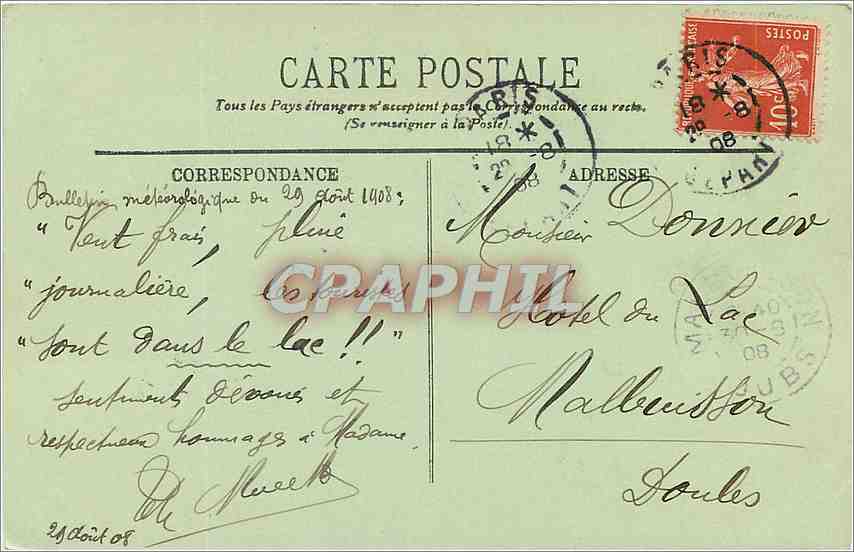 CARTE POSTALE
Tous les Pays étrangers n'acceptent pas la Correspondance au recto.
(Se renseigner à la Poste).
POSTES
10c
PARIS
18 * 1
29 -8
08
DEPART
PARIS
18 * 1
29 -8
08
CORRESPONDANCE
Bulletin météorologique du 29 août 1908:
"Vent frais, pluie
"journalière, les touristes
"sont dans le lac!!"
sentiments dévoués et
respectueux hommages à Madame.
29 août 08
CPAPHIL
ADRESSE
Monsieur Donnier
Hôtel du Lac
Malbuisson
Doubs
30 -8
08
DOUBS